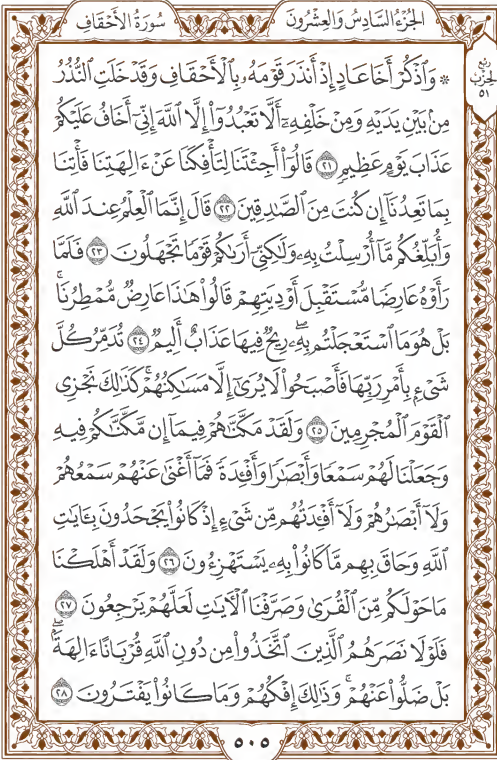 سُورَةُ الأَحْقَافِ
الجُزْءُ السَّادِسُ وَالعِشْرُونَ
ربع
الحزب
٥١
۞ وَٱذْكُرْ أَخَا عَادٍ إِذْ أَنذَرَ قَوْمَهُۥ بِٱلْأَحْقَافِ وَقَدْ خَلَتِ ٱلنُّذُرُ
مِنۢ بَيْنِ يَدَيْهِ وَمِنْ خَلْفِهِۦٓ أَلَّا تَعْبُدُوٓا۟ إِلَّا ٱللَّهَ إِنِّىٓ أَخَافُ عَلَيْكُمْ
عَذَابَ يَوْمٍ عَظِيمٍ ٢١ قَالُوٓا۟ أَجِئْتَنَا لِتَأْفِكَنَا عَنْ ءَالِهَتِنَا فَأْتِنَا
بِمَا تَعِدُنَآ إِن كُنتَ مِنَ ٱلصَّـٰدِقِينَ ٢٢ قَالَ إِنَّمَا ٱلْعِلْمُ عِندَ ٱللَّهِ
وَأُبَلِّغُكُم مَّآ أُرْسِلْتُ بِهِۦ وَلَـٰكِنِّىٓ أَرَىٰكُمْ قَوْمًا تَجْهَلُونَ ٢٣ فَلَمَّا
رَأَوْهُ عَارِضًا مُّسْتَقْبِلَ أَوْدِيَتِهِمْ قَالُوا۟ هَـٰذَا عَارِضٌ مُّمْطِرُنَا ۚ
بَلْ هُوَ مَا ٱسْتَعْجَلْتُم بِهِۦ ۖ رِيحٌ فِيهَا عَذَابٌ أَلِيمٌ ٢٤ تُدَمِّرُ كُلَّ
شَىْءٍۭ بِأَمْرِ رَبِّهَا فَأَصْبَحُوا۟ لَا يُرَىٰٓ إِلَّا مَسَـٰكِنُهُمْ ۚ كَذَٰلِكَ نَجْزِى
ٱلْقَوْمَ ٱلْمُجْرِمِينَ ٢٥ وَلَقَدْ مَكَّنَّـٰهُمْ فِيمَآ إِن مَّكَّنَّـٰكُمْ فِيهِ
وَجَعَلْنَا لَهُمْ سَمْعًا وَأَبْصَـٰرًا وَأَفْـِٔدَةً فَمَآ أَغْنَىٰ عَنْهُمْ سَمْعُهُمْ
وَلَآ أَبْصَـٰرُهُمْ وَلَآ أَفْـِٔدَتُهُم مِّن شَىْءٍ إِذْ كَانُوا۟ يَجْحَدُونَ بِـَٔايَـٰتِ
ٱللَّهِ وَحَاقَ بِهِم مَّا كَانُوا۟ بِهِۦ يَسْتَهْزِءُونَ ٢٦ وَلَقَدْ أَهْلَكْنَا
مَا حَوْلَكُم مِّنَ ٱلْقُرَىٰ وَصَرَّفْنَا ٱلْـَٔايَـٰتِ لَعَلَّهُمْ يَرْجِعُونَ ٢٧
فَلَوْلَا نَصَرَهُمُ ٱلَّذِينَ ٱتَّخَذُوا۟ مِن دُونِ ٱللَّهِ قُرْبَانًا ءَالِهَةًۢ ۖ
بَلْ ضَلُّوا۟ عَنْهُمْ ۚ وَذَٰلِكَ إِفْكُهُمْ وَمَا كَانُوا۟ يَفْتَرُونَ ٢٨
٥٠٥